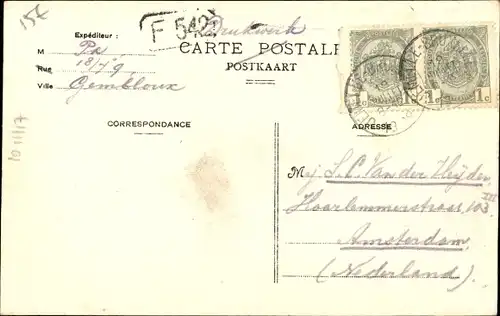 15€
F 542
Drukwerk
Expéditeur :
M
18/4 9
Rue
Ville Gembloux
CARTE POSTALE
POSTKAART
1c 1c
CORRESPONDANCE
ADRESSE
Mej S. C. Van der Heyden
Haarlemmerstraat 103 III
Amsterdam
(Nederland)